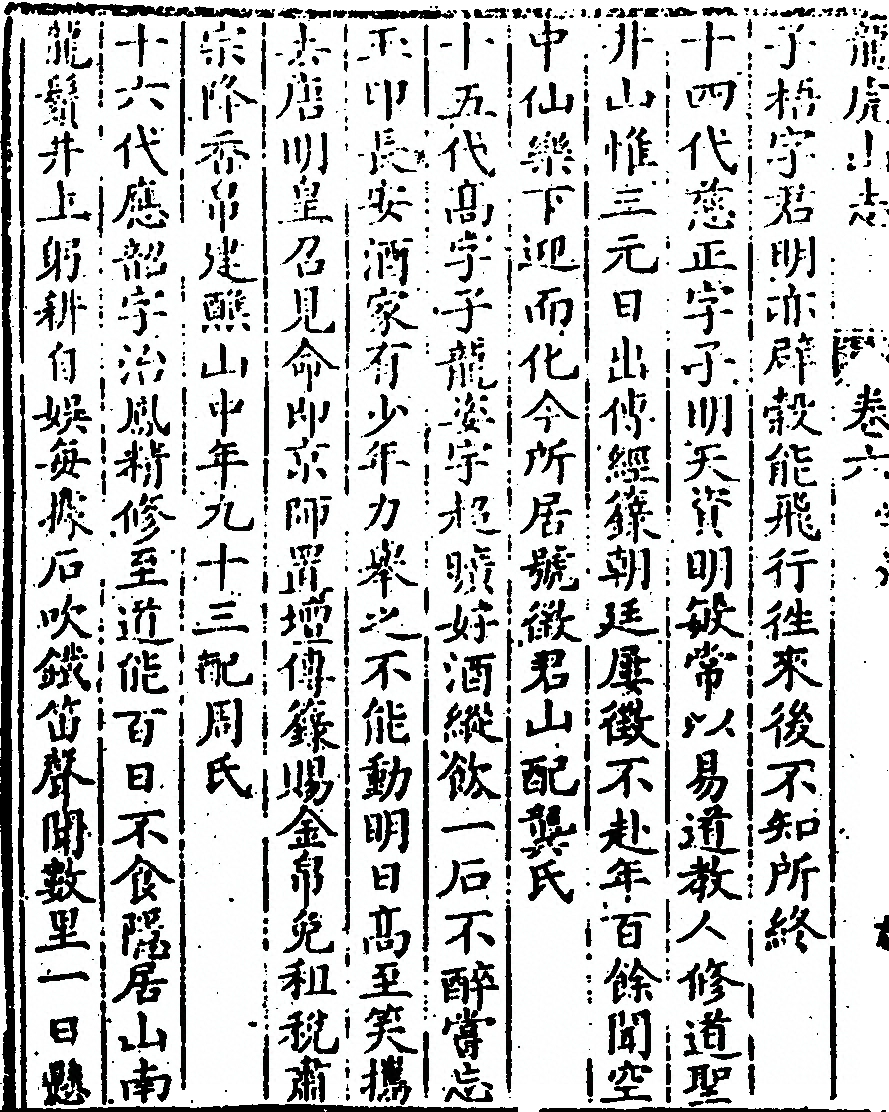 龍虎山志　卷六
子梧字君明亦辟穀能飛行往來後不知所終
十四代慈正字子明天資明敏常以易道教人修道聖
井山惟三元日出傳經籙朝廷屢徵不赴年百餘聞空
中仙樂下迎而化今所居號徵君山配龔氏
十五代高字子龍姿宇超曠好酒縱飲一石不醉嘗忘
玉印長安酒家有少年力舉之不能動明日高至笑攜
去唐明皇召見命即京師置壇傳籙賜金帛免租稅肅
宗降香帛建醮山中年九十三配周氏
十六代應韶字治鳳精修至道能百日不食隱居山南
龍鬚井上躬耕自娛每據石吹鐵笛聲聞數里一日懸